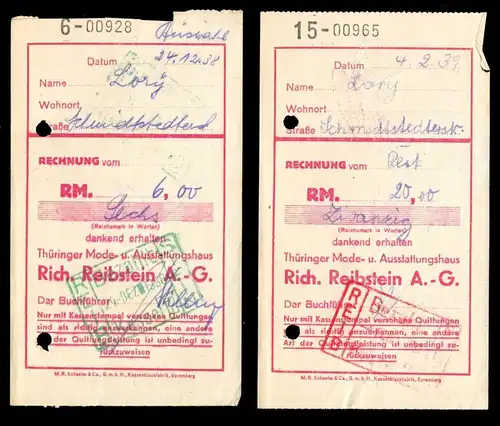 6-00928
Auswahl
Datum 24.12.38
Name Lory
Wohnort
Straße Schmidtstedterstr.
RECHNUNG vom
RM. 6,00
Sechs
(Reichsmark in Worten)
dankend erhalten
Thüringer Mode- u. Ausstattungshaus
Rich. Reibstein A.-G.
Der Buchführer
Nur mit Kassenstempel versehene Quittungen
sind als richtig anzuerkennen, eine andere
Art der Quittungsleistung ist unbedingt zu-
rückzuweisen
M. R. Schaefer & Co., G. m. b. H., Kassenblockfabrik, Spremberg
15-00965
Datum 4.2.39
Name Lory
Wohnort
Straße Schmidtstedterstr.
RECHNUNG vom Rest
RM. 20,00
Zwanzig
(Reichsmark in Worten)
dankend erhalten
Thüringer Mode- u. Ausstattungshaus
Rich. Reibstein A.-G.
Der Buchführer
Nur mit Kassenstempel versehene Quittungen
sind als richtig anzuerkennen, eine andere
Art der Quittungsleistung ist unbedingt zu-
rückzuweisen
M. R. Schaefer & Co., G. m. b. H., Kassenblockfabrik, Spremberg